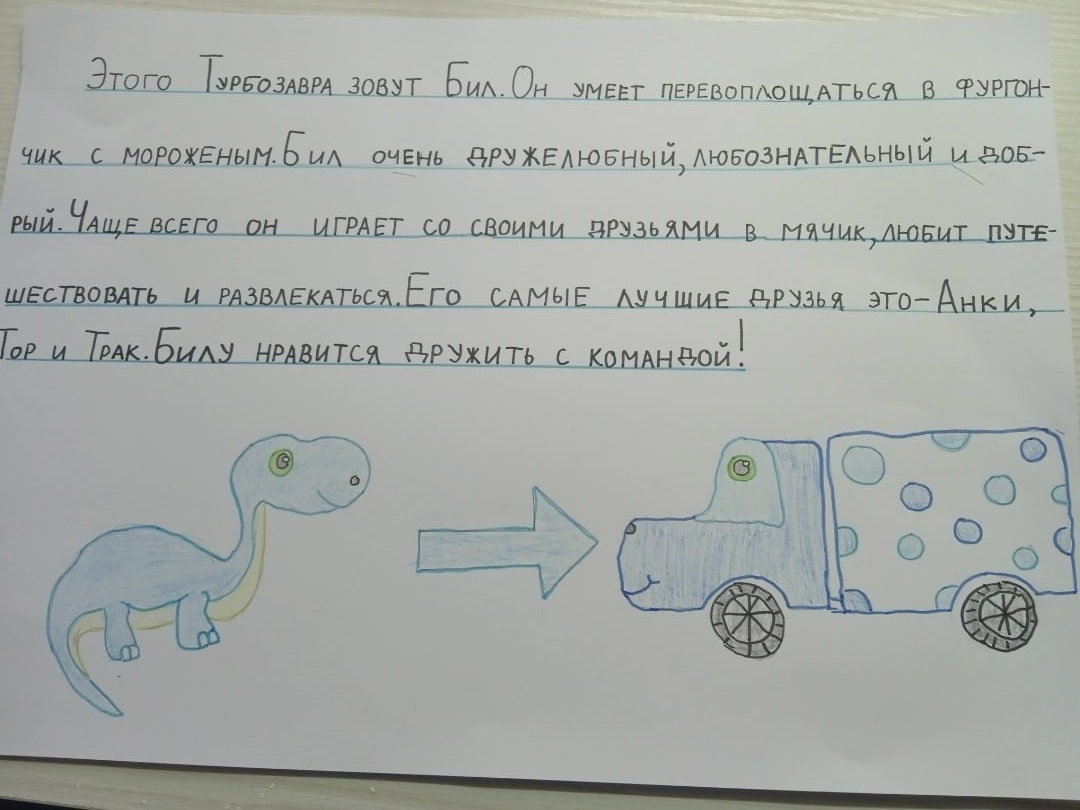 Этого Турбозавра зовут Бил. Он умеет перевоплощаться в фургон-
чик с мороженым. Бил очень дружелюбный, любознательный и доб-
рый. Чаще всего он играет со своими друзьями в мячик, любит путе-
шествовать и развлекаться. Его самые лучшие друзья это - Анки,
Тор и Трак. Билу нравится дружить с командой!